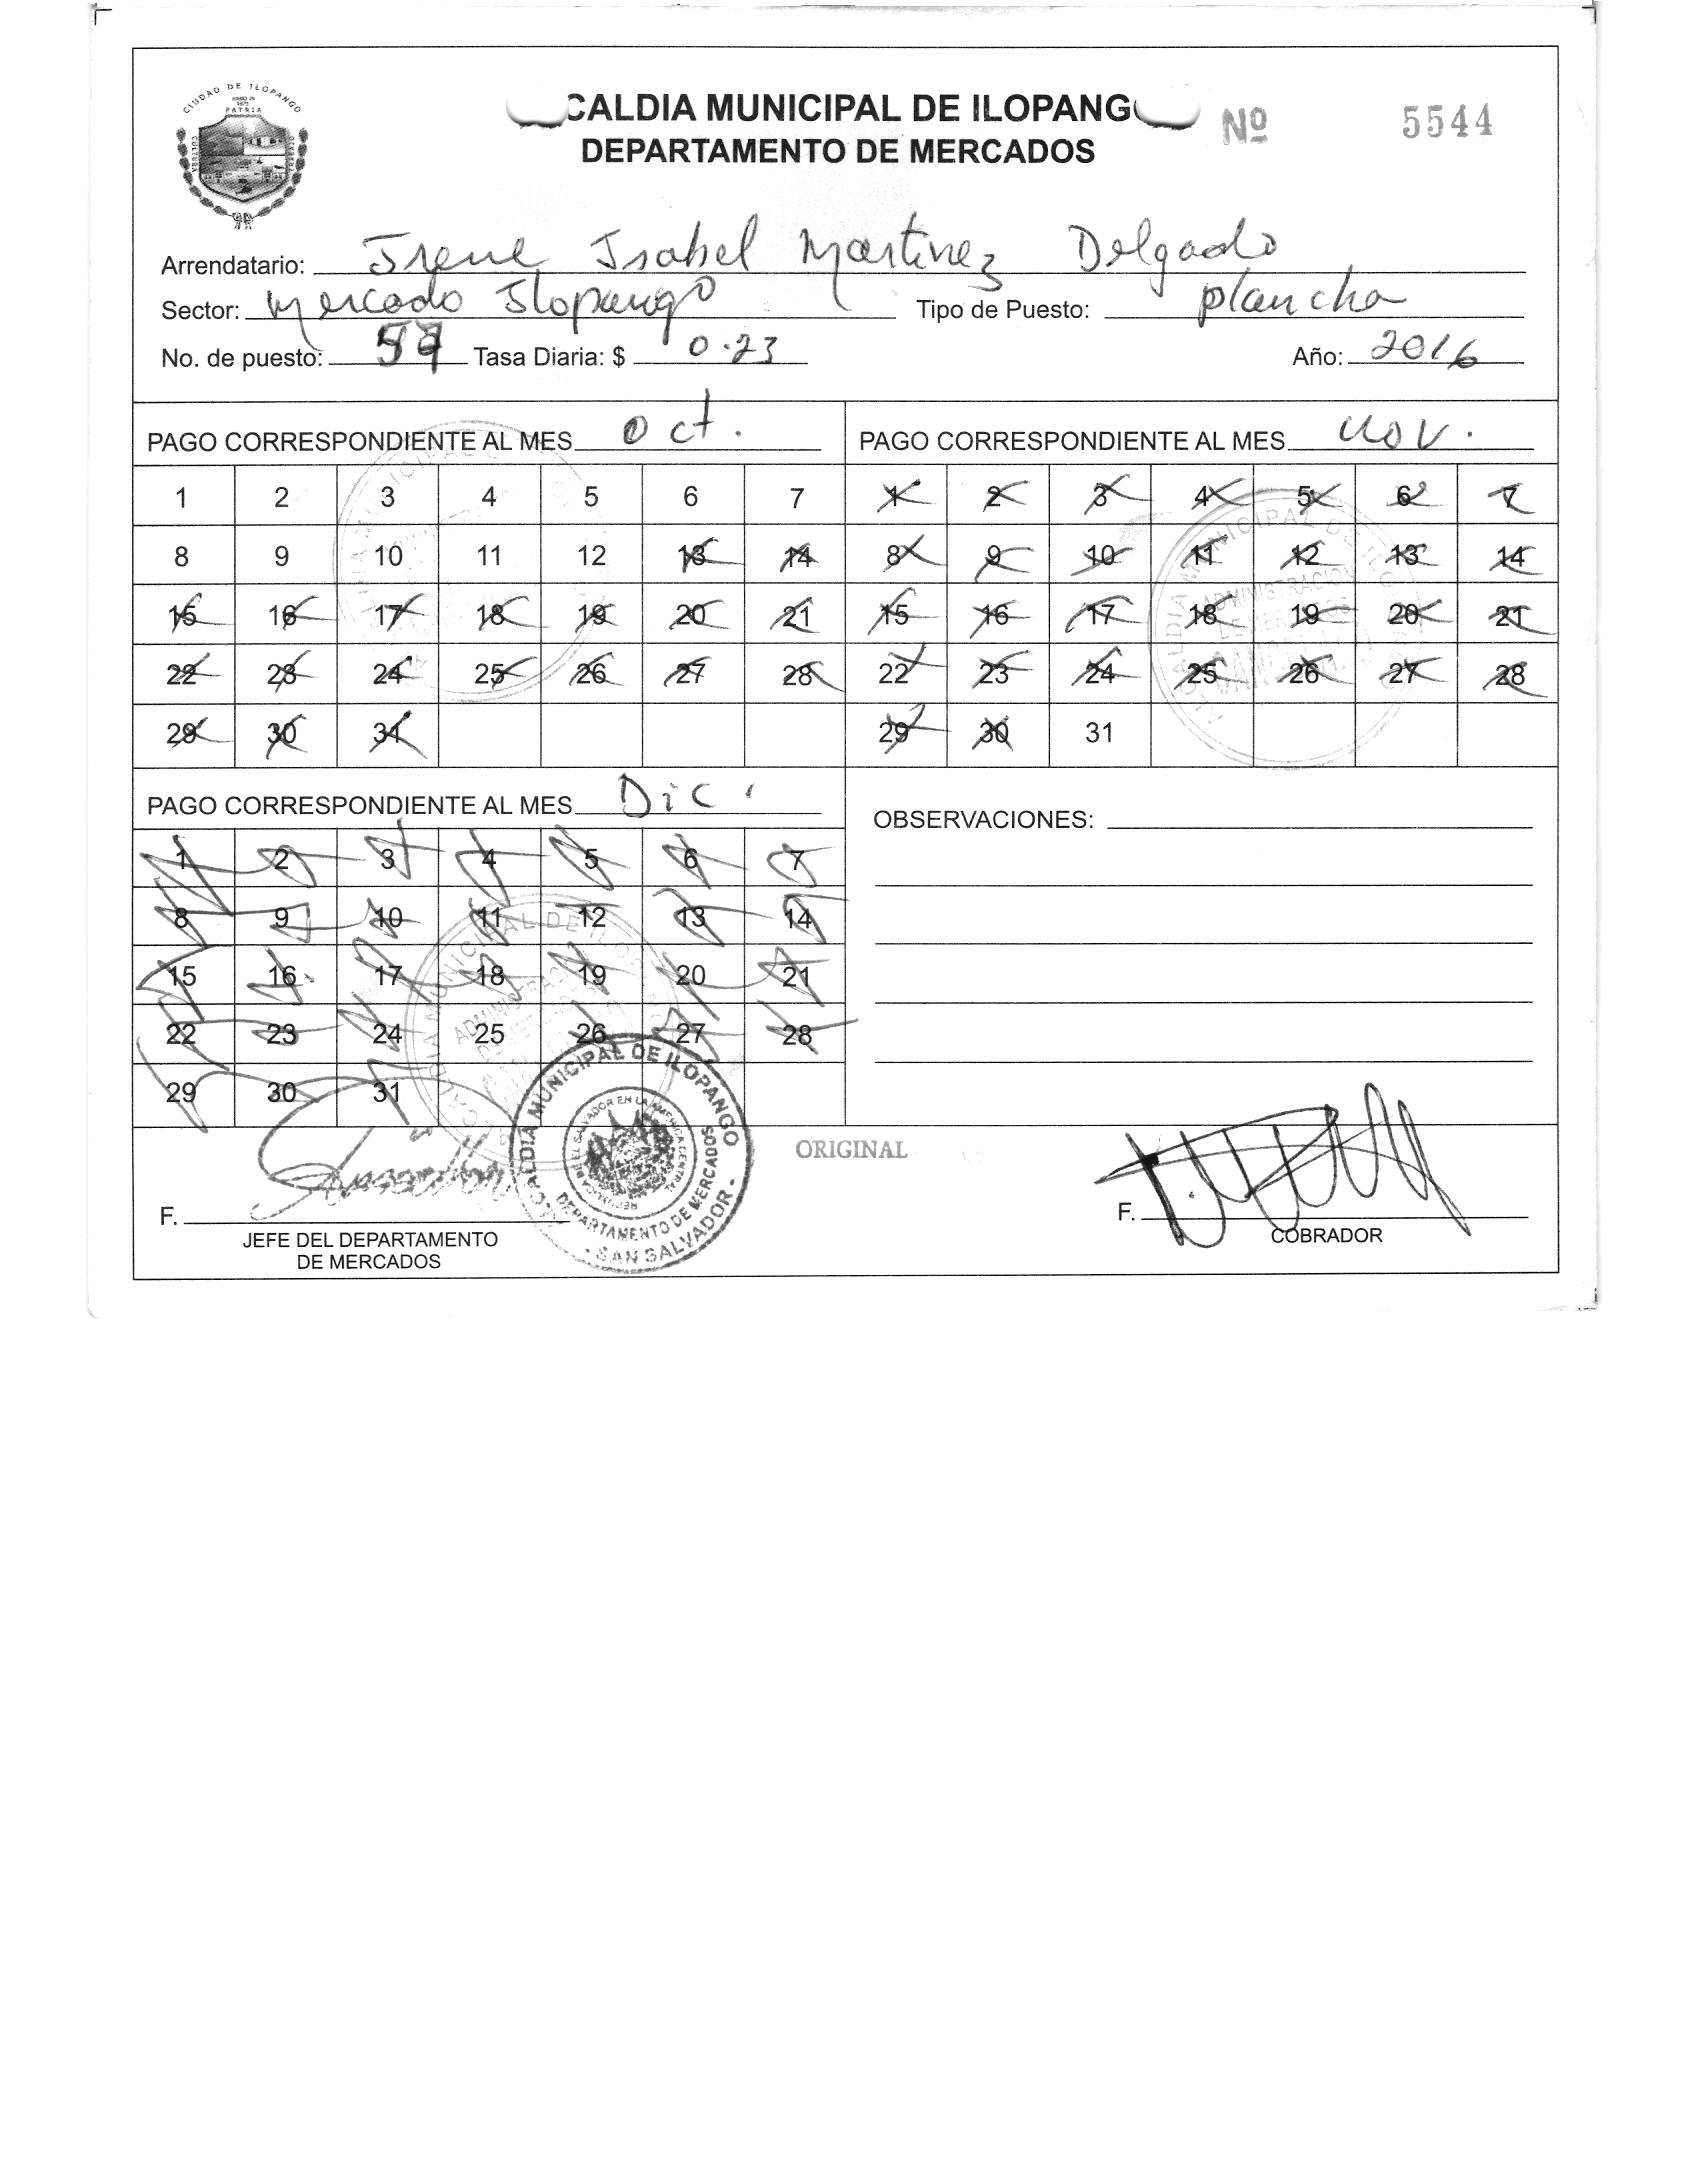 CIUDAD DE ILOPANGO
PATRIA
CALDIA MUNICIPAL DE ILOPANG
DEPARTAMENTO DE MERCADOS
Nº 5544
Arrendatario: Irene Isabel Martinez Delgado
Sector: Mercado Ilopango Tipo de Puesto: plancha
No. de puesto: Tasa Diaria: $ 0.23 Año: 2016
PAGO CORRESPONDIENTE AL MES Oct.
1 2 3 4 5 6 7
8 9 10 11 12 13 14
15 16 17 18 19 20 21
22 23 24 25 26 27 28
29 30 31
PAGO CORRESPONDIENTE AL MES Nov.
1 2 3 4 5 6 7
8 9 10 11 12 13 14
15 16 17 18 19 20 21
22 23 24 25 26 27 28
29 30 31
PAGO CORRESPONDIENTE AL MES Dic.
1 2 3 4 5 6 7
8 9 10 11 12 13 14
15 16 17 18 19 20 21
22 23 24 25 26 27 28
29 30 31
OBSERVACIONES:
ALCALDIA MUNICIPAL DE ILOPANGO
DEPARTAMENTO DE MERCADOS
SAN SALVADOR
ORIGINAL
F.
JEFE DEL DEPARTAMENTO
DE MERCADOS
F.
COBRADOR